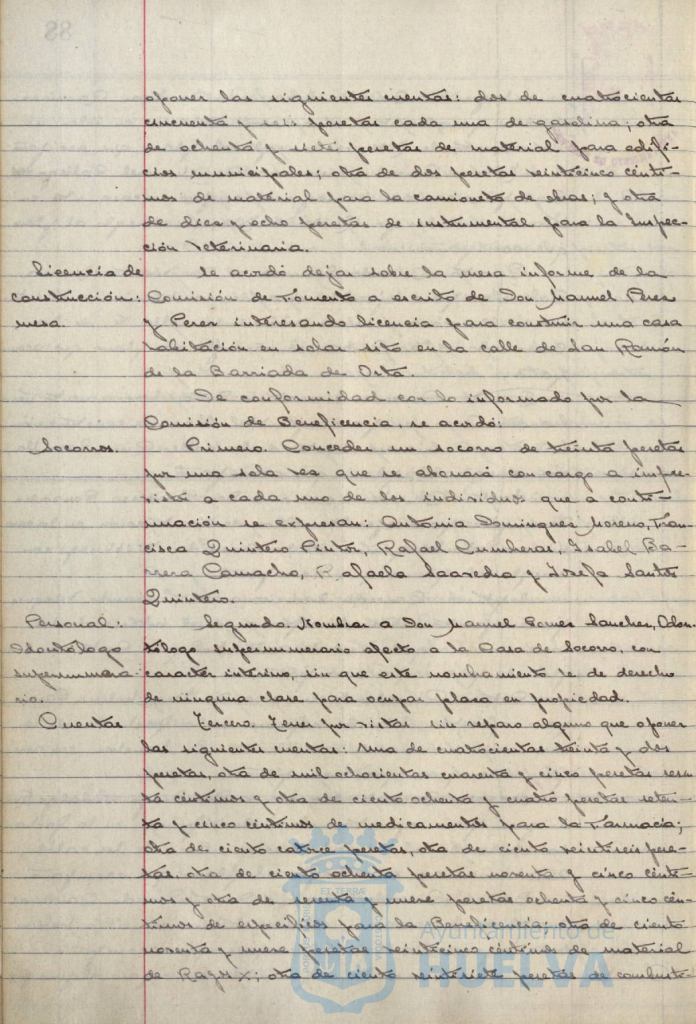 oponer las siguientes cuentas: dos de cuatrocientas
cincuenta y seis pesetas cada una de gasolina; otra
de ochenta y siete pesetas de material para edifi-
cios municipales; otra de dos pesetas veinticinco cénti-
mos de material para la camioneta de obras; y otra
de diez y ocho pesetas de instrumental para la Inspec-
ción Veterinaria.
Licencia de
construcción:
mesa.
Se acordó dejar sobre la mesa informe de la
Comisión de Fomento a escrito de Don Manuel Perez
y Perez interesando licencia para construir una casa
habitación en solar sito en la calle de San Ramón
de la Barriada de Orta.
De conformidad con lo informado por la
Comisión de Beneficencia, se acordó:
Socorros.
Primero. Conceder un socorro de treinta pesetas
por una sola vez que se abonará con cargo a impre-
vistos a cada uno de los individuos que a conti-
nuación se expresan: Antonia Dominguez Moreno, Fran-
cisca Quintero Pintor, Rafael Cumbreras, Isabel Ba-
rrera Camacho, Rafaela Saavedra y Josefa Santos
Quintero.
Personal:
Odontólogo
supernumera-
rio.
Segundo. Nombrar a Don Manuel Gomez Sanchez, Odon-
tólogo supernumerario afecto a la Casa de Socorro, con
caracter interino, sin que este nombramiento le de derecho
de ninguna clase para ocupar plaza en propiedad.
Cuentas
Tercero. Tener por vistas sin reparo alguno que oponer
las siguientes cuentas: una de cuatrocientas treinta y dos
pesetas, otra de mil ochocientas cuarenta y cinco pesetas sesen-
ta céntimos y otra de ciento ochenta y cuatro pesetas seten-
ta y cinco céntimos de medicamentos para la Farmacia;
otra de ciento catorce pesetas, otra de ciento veintiseis pese-
tas, otra de ciento ochenta pesetas noventa y cinco cénti-
mos y otra de sesenta y nueve pesetas ochenta y cinco cén-
timos de específicos para la Beneficencia; otra de ciento
noventa y nueve pesetas veinticinco céntimos de material
de Rayos X; otra de ciento veintisiete pesetas de combusti-
Ayuntamiento de
HUELVA